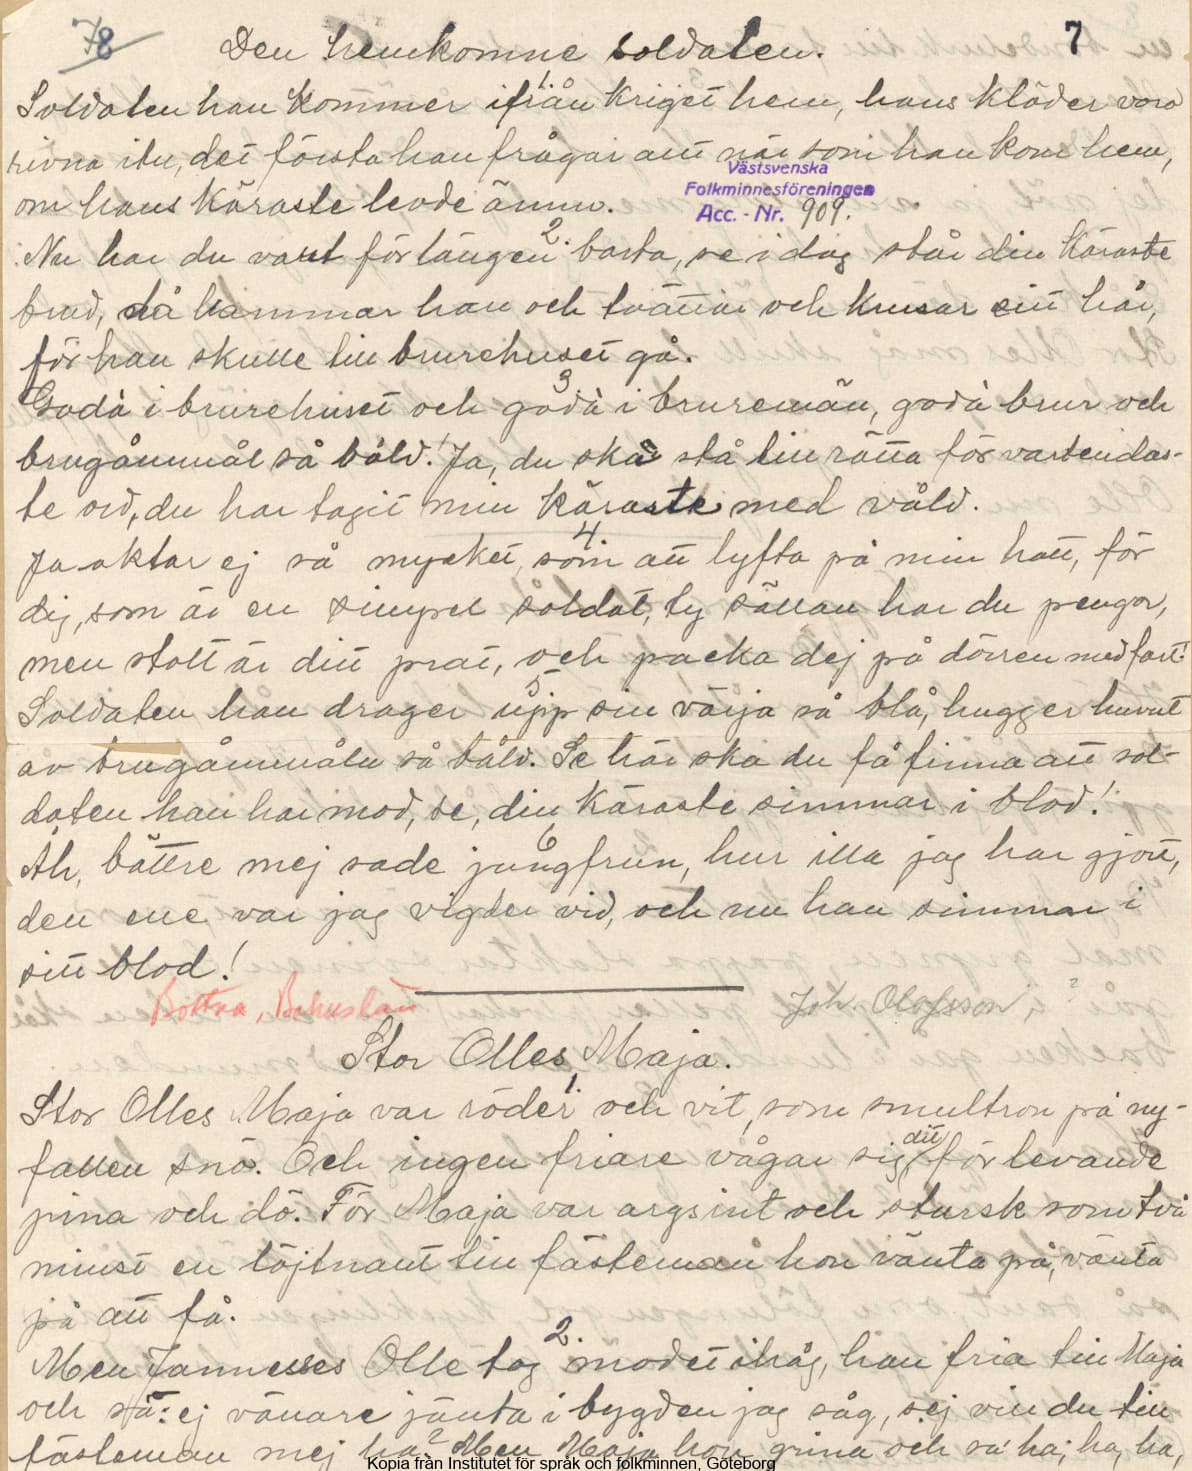 78
7
Den hemkomne soldaten.
1.
Soldaten han kommer ifrån kriget hem, hans kläder voro
rivna itu, det första han frågar att när som han kom hem,
Västsvenska
Folkminnesföreningen
Acc. - Nr. 909.
om hans käraste levde ännu.
2.
Nu har du varit för längen borta, se i dag står din käraste
brud, då kammar han och tvättar och krusar sitt hår,
för han skulle till brurehuset gå.
3
Godà i brurehuset och godà i bruremän, godà brur och
brugåmmål så båld! Ja, du ska stå till rätta för vartendas-
te ord, du har tagit min käraste med våld.
4.
Ja aktar ej så mycket, som att lyfta på min hatt, för
dig, som är en simpel soldat, ty sällan har du pengar,
men stolt är ditt prat, och packa dej på dörren med fart!
5
Soldaten han drager upp sin värja så blå, hugger huvut
av brugåmmåln så båld. Se här ska du få finna att sol-
daten han har mod, se, din käraste simmar i blod!
6
Ah, bättre mej sade jungfrun, hur illa jag har gjort,
den ene var jag vigder vid, och nu han simmar i
sitt blod!
Bottna, Bohuslän
Joh. Olofsson ?
Stor Olles Maja.
1.
Stor Olles Maja var röder och vit, som smultron på ny-
fallen snö. Och ingen friare vågar sig dit för levande
pina och dö. För Maja var argsint och stursk som två
minst en löjtnant till fästeman hon vänta på, vänta
på att få.
2.
Men Jannesses Olle tog modet ihåg, han fria till Maja
och sa: ej vänare jänta i bygden jag såg, sej vill du till
fästeman mej ha? Men Maja hon grina och sa ha, ha, ha,
Kopia från Institutet för språk och folkminnen, Göteborg